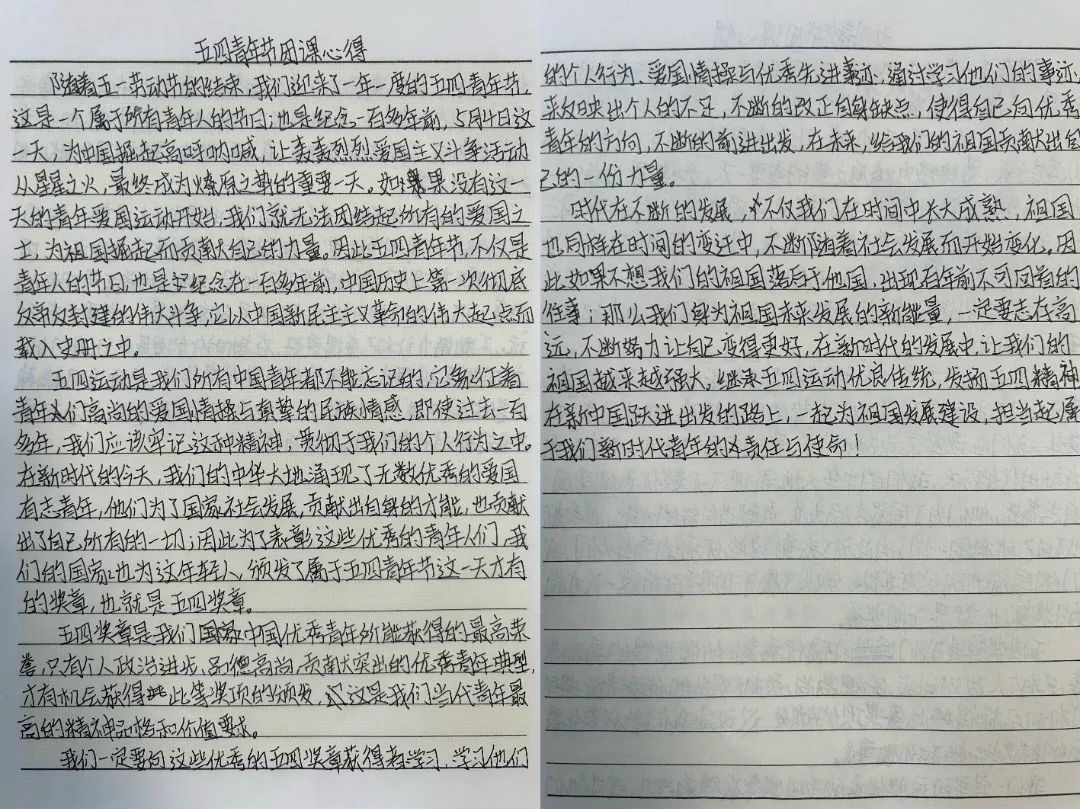 五四青年节团课心得
随着五一劳动节的结束，我们迎来了一年一度的五四青年节，
这是一个属于所有青年人的节日；也是纪念一百多年前，5月4日这
一天，为中国掘起高呼呐喊，让轰轰烈烈爱国主义斗争活动
从星星之火，最终成为燎原之势的重要一天。如果没有这一
天的青年爱国运动开始，我们就无法团结起所有的爱国之
士，为祖国掘起而贡献自己的力量。因此五四青年节，不仅是
青年人的节日，也是纪念在一百多年前，中国历史上第一次彻底
反帝反封建的伟大斗争，它以中国新民主主义革命的伟大起点而
载入史册之中。
五四运动是我们所有中国青年都不能忘记的，它象征着
青年人们高尚的爱国情操与真挚的民族情感，即使过去一百
多年，我们应该牢记这种精神，贯彻于我们的个人行为之中。
在新时代的今天，我们的中华大地涌现了无数优秀的爱国
有志青年，他们为了国家社会发展，贡献出自身的才能，也贡献
出了自己所有的一切；因此为了表彰这些优秀的青年人们，我
们的国家也为这年轻人，颁发了属于五四青年节这一天才有
的奖章，也就是五四奖章。
五四奖章是我们国家中国优秀青年所能获得的最高荣
誉，只有个人政治进步、品德高尚、贡献突出的优秀青年典型，
才有机会获得此等奖项的颁发，这是我们当代青年最
高的精神品格和价值要求。
我们一定要向这些优秀的五四奖章获得者学习，学习他们
的个人行为、爱国情操与优秀先进事迹，通过学习他们的事迹，
来反映出个人的不足，不断的改正自身缺点，使得自己向优秀
青年的方向，不断的前进出发，在未来，给我们的祖国贡献出自
己的一份力量。
时代在不断的发展，不仅我们在时间中长大成熟，祖国
也同样在时间的变迁中，不断随着社会发展而开始变化，因
此如果不想我们的祖国落后于他国，出现百年前不可回首的
往事；那么我们身为祖国未来发展的新能量，一定要志在高
远，不断努力让自己变得更好，在新时代的发展中，让我们的
祖国越来越强大，继承五四运动优良传统，发扬五四精神
在新中国跃进出发的路上，一起为祖国发展建设，担当起属
于我们新时代青年的责任与使命！